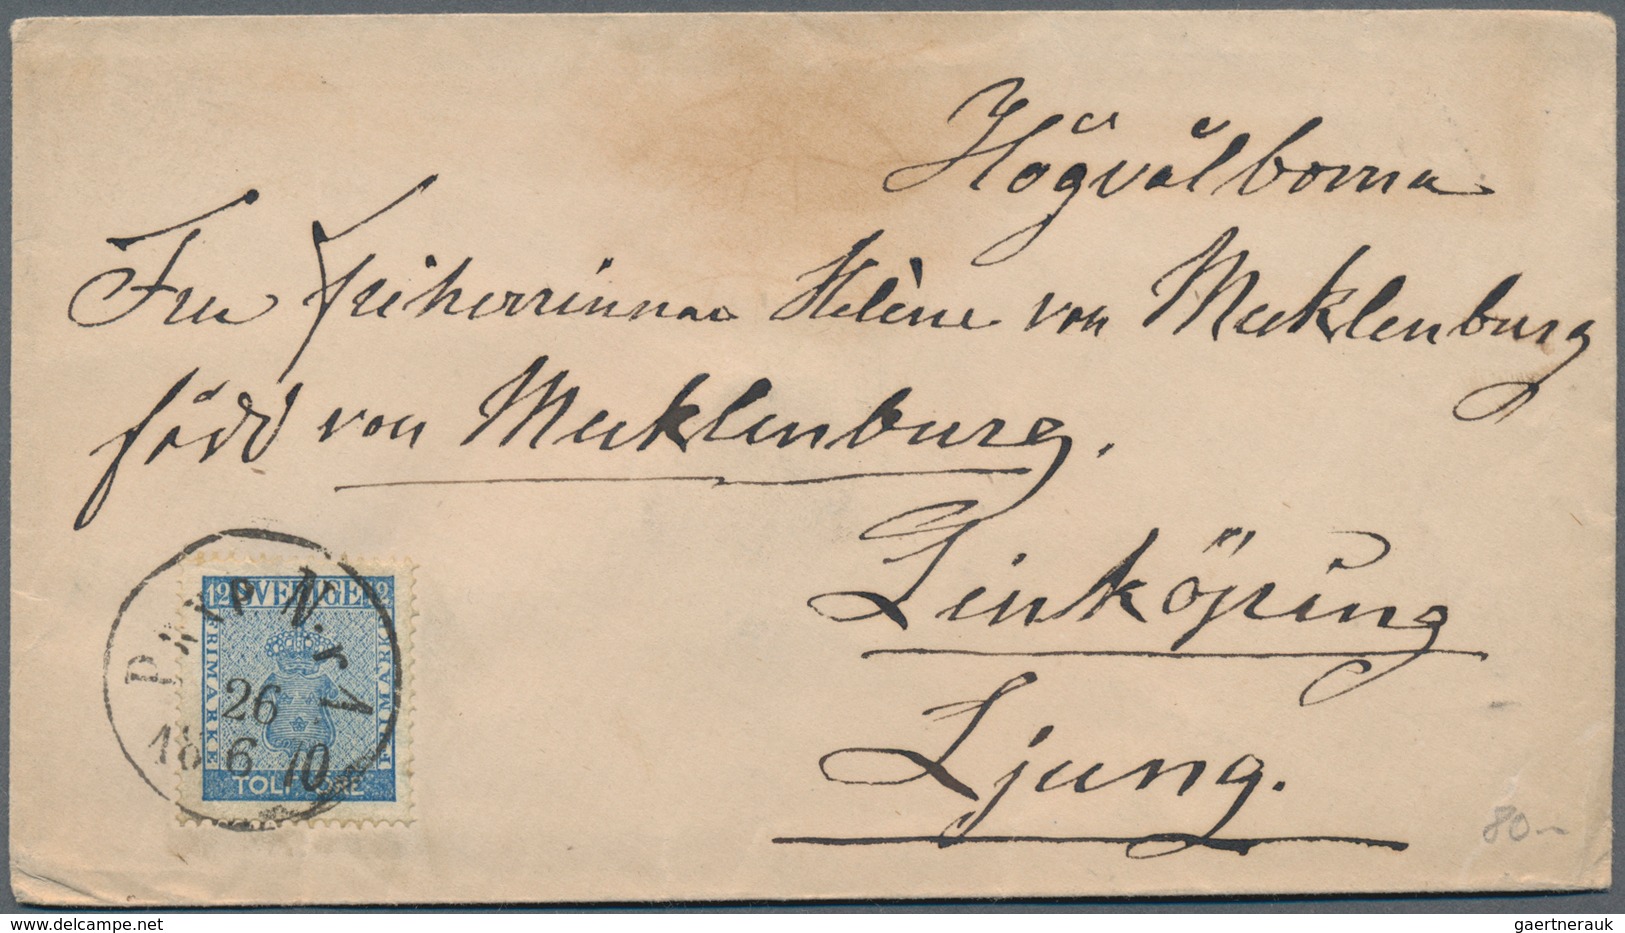 Högvälborna
Fru Friherrinnan Helène von Mecklenburg
född von Mecklenburg.
Linköping
Ljung.
12 SVERIGE 12
FRIMÄRKE
FRIMÄRKE
TOLF ÖRE
PKXP. N.r 1
26
18 6 70
80-
gaertnerauk